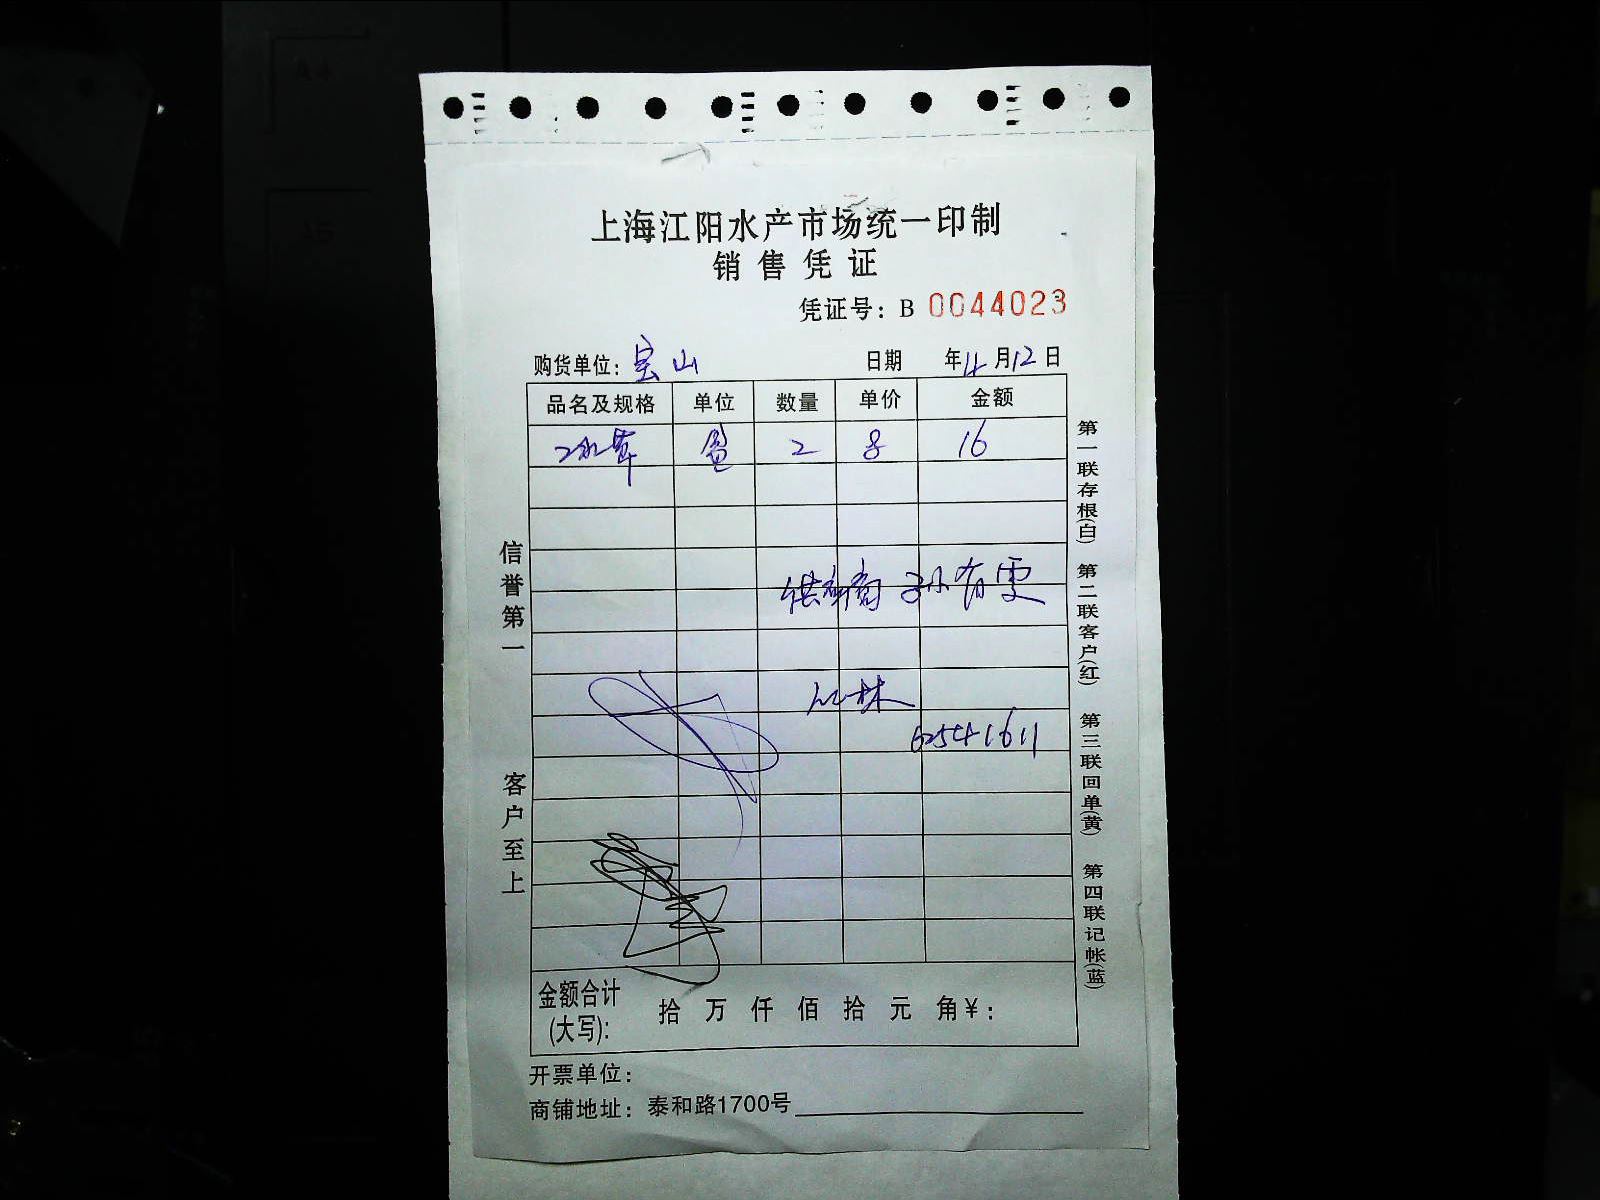 上海江阳水产市场统一印制
销售凭证
凭证号：B 0044023
购货单位：宝山 日期 年4月12日
品名及规格 单位 数量 单价 金额
2 8 16
供应商 孙有雯
林
62541611
金额合计(大写): 拾 万 仟 佰 拾 元 角￥：
开票单位：
商铺地址：泰和路1700号
信誉第一 客户至上
第一联存根(白) 第二联客户(红) 第三联回单(黄) 第四联记帐(蓝)